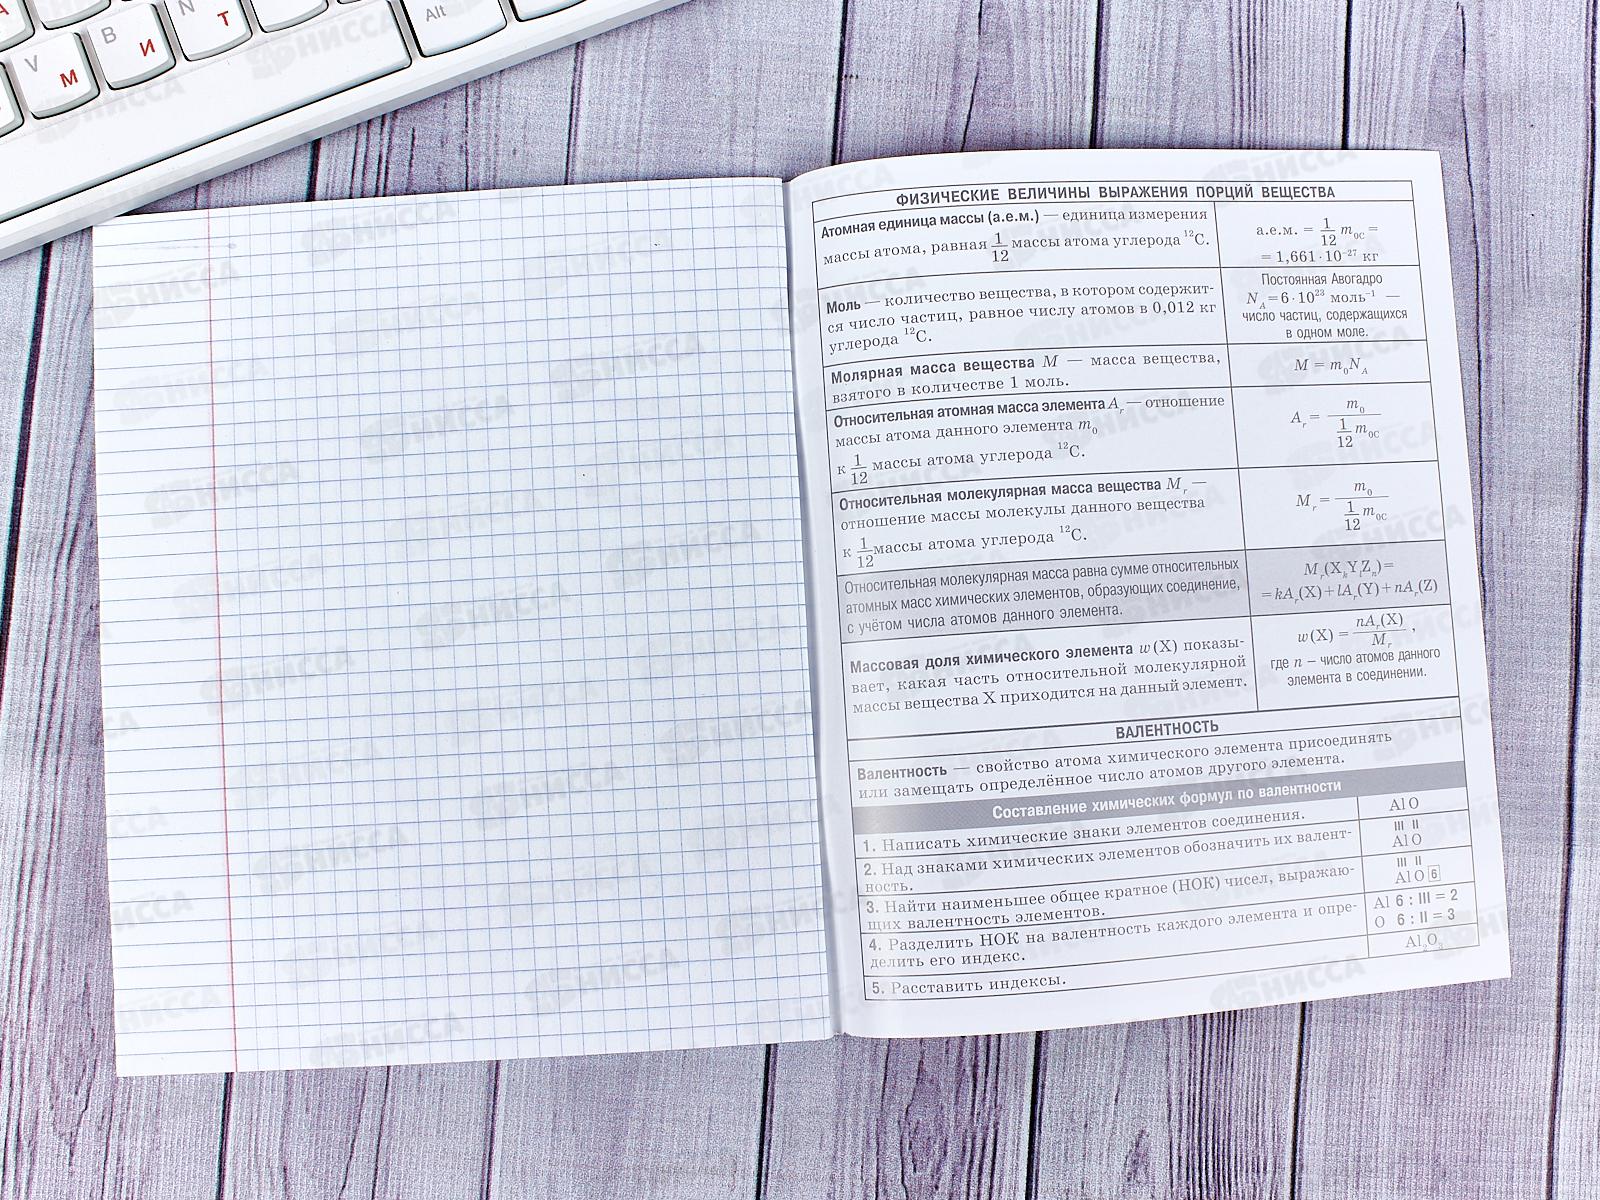 V М
B И
N Т
Alt
ФИЗИЧЕСКИЕ ВЕЛИЧИНЫ ВЫРАЖЕНИЯ ПОРЦИЙ ВЕЩЕСТВА
Атомная единица массы (а.е.м.) — единица измерения
массы атома, равная 1/12 массы атома углерода ¹²C.
а.е.м. = 1/12 m₀C =
= 1,661·10⁻²⁷ кг
Моль — количество вещества, в котором содержит-
ся число частиц, равное числу атомов в 0,012 кг
углерода ¹²C.
Постоянная Авогадро
N_A = 6·10²³ моль⁻¹ —
число частиц, содержащихся
в одном моле.
Молярная масса вещества M — масса вещества,
взятого в количестве 1 моль.
M = m₀N_A
Относительная атомная масса элемента A_r — отношение
массы атома данного элемента m₀
к 1/12 массы атома углерода ¹²C.
A_r = m₀ / (1/12 m₀C)
Относительная молекулярная масса вещества M_r —
отношение массы молекулы данного вещества
к 1/12 массы атома углерода ¹²C.
M_r = m₀ / (1/12 m₀C)
Относительная молекулярная масса равна сумме относительных
атомных масс химических элементов, образующих соединение,
с учётом числа атомов данного элемента.
M_r(X_kY_lZ_n) =
= kA_r(X) + lA_r(Y) + nA_r(Z)
Массовая доля химического элемента w(X) показы-
вает, какая часть относительной молекулярной
массы вещества X приходится на данный элемент.
w(X) = nA_r(X) / M_r ,
где n – число атомов данного
элемента в соединении.
ВАЛЕНТНОСТЬ
Валентность — свойство атома химического элемента присоединять
или замещать определённое число атомов другого элемента.
Составление химических формул по валентности
1. Написать химические знаки элементов соединения.
Al O
2. Над знаками химических элементов обозначить их валент-
ность.
III II
Al O
3. Найти наименьшее общее кратное (НОК) чисел, выражаю-
щих валентность элементов.
III II
Al O 6
4. Разделить НОК на валентность каждого элемента и опре-
делить его индекс.
Al 6 : III = 2
O 6 : II = 3
5. Расставить индексы.
Al₂O₃
НИССА